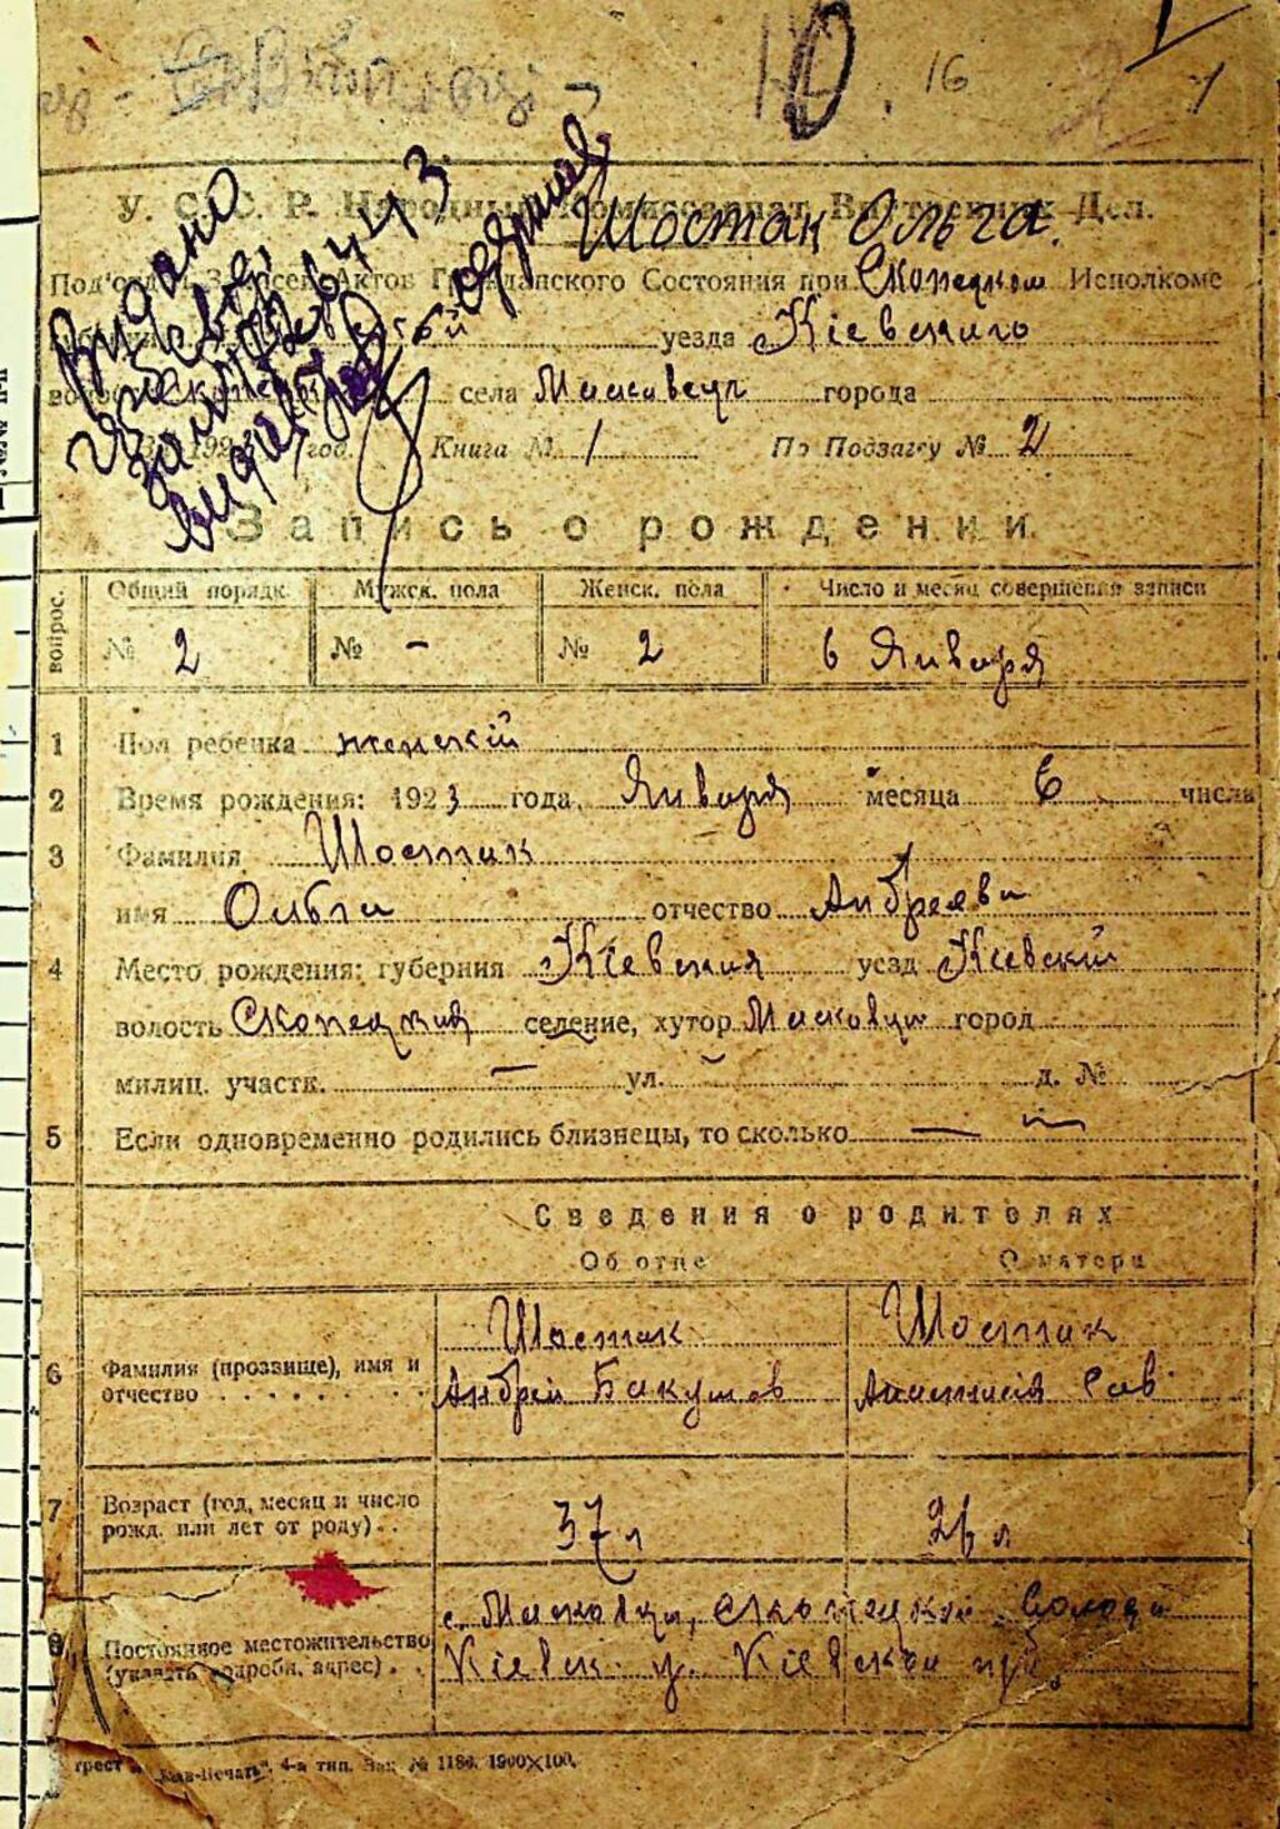 16
У. С. С. Р. Народный Комиссариат Внутренних Дел.
Шостак Ольга.
Под'отдел Записей Актов Гражданского Состояния при Скопецком Исполкоме
уезда Кіевского
села Масковцы города
192 год. Книга № 1 По Подзагсу № 2
Видано
Запись о рождении
вопрос.
Общий порядк. Мужск. пола Женск. пола Число и месяц совершения записи
№ 2 № - № 2 6 Января
1 Пол ребенка женскій
2 Время рождения: 1923 года, Января месяца 6 числа
3 Фамилия Шостак
имя Ольга отчество Андреевн
4 Место рождения: губерния Кіевская уезд Кіевскій
волость Скопецкая селение, хутор Масковцы город
милиц. участк. — ул. — д. №
5 Если одновременно родились близнецы, то сколько — —
Сведения о родителях
Об отце О матери
6 Фамилия (прозвище), имя и отчество
Шостак Шостак
Андрей Анастасія Сав
7 Возраст (год, месяц и число рожд. или лет от роду)
37 л 26 л
8 Постоянное местожительство (указать подробн. адрес)
с. Масковцы, Скопецкой Волости
Кіевск. у. Кіевской губ.
трест „Киев-Печать“, 4-я тип. Зак. № 1186. 1900×100.